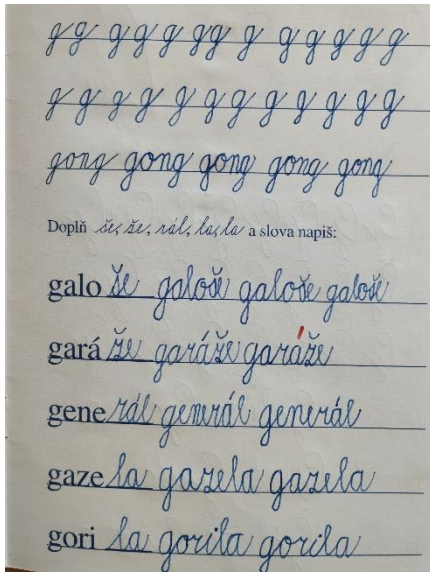 g g g g g g g g g g g g g
g g g g g g g g g g g g
gong gong gong gong gong
Doplň še, že, rál, la, la a slova napiš:
galo še galoše galoše galoše
gará že garáže garáže
gene rál generál generál
gaze la gazela gazela
gori la gorila gorila